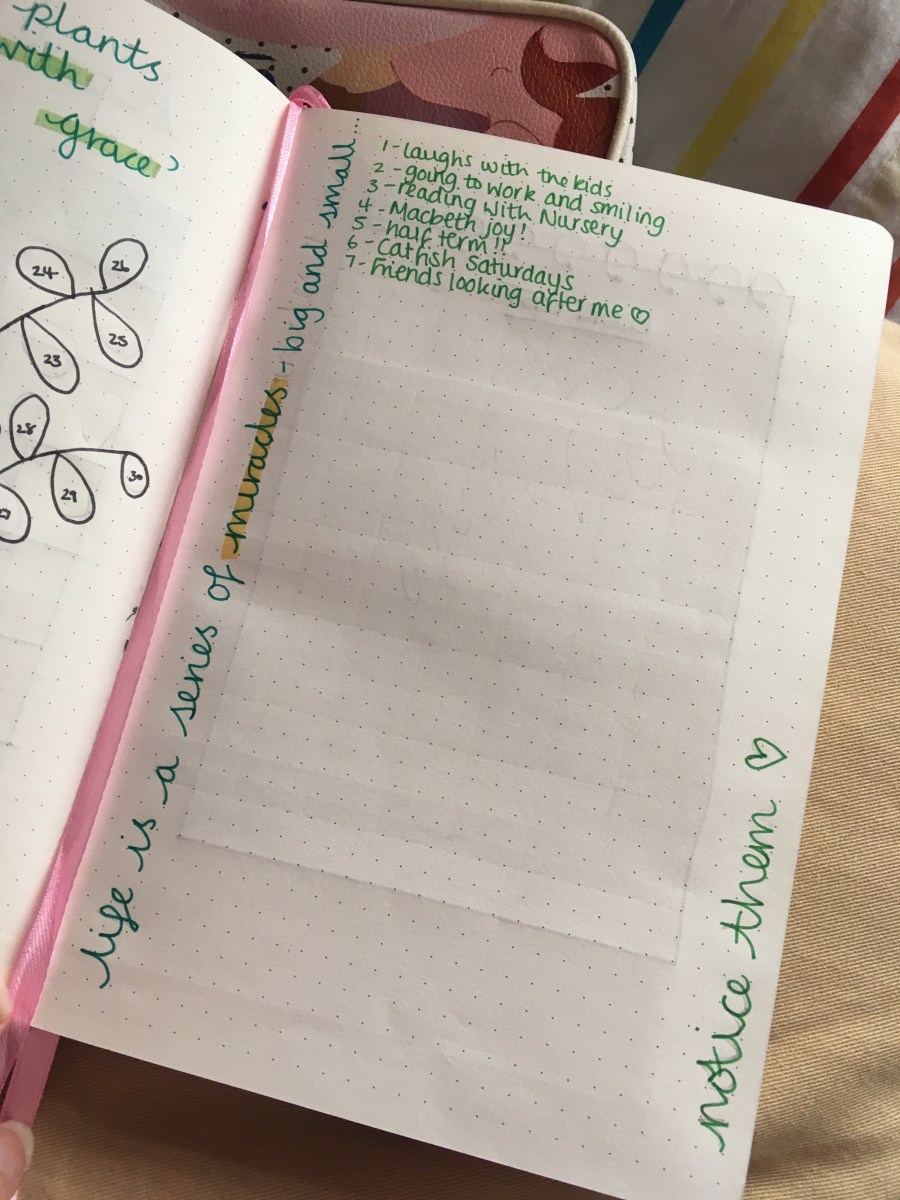 plants
with
grace'
24
26
23
25
28
29
30
life is a series of miracles - big and small...
1 - laughs with the kids
2 - going to work and smiling
3 - reading with Nursery
4 - Macbeth joy!
5 - half term!!
6 - Catfish Saturdays
7 - Friends looking after me ♡
notice them ♡